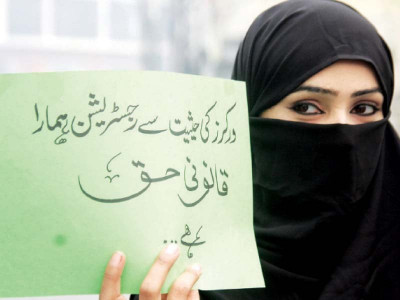 ورکرز کی حیثیت سے رجسٹریشن ہمارا
قانونی حق
ہے...